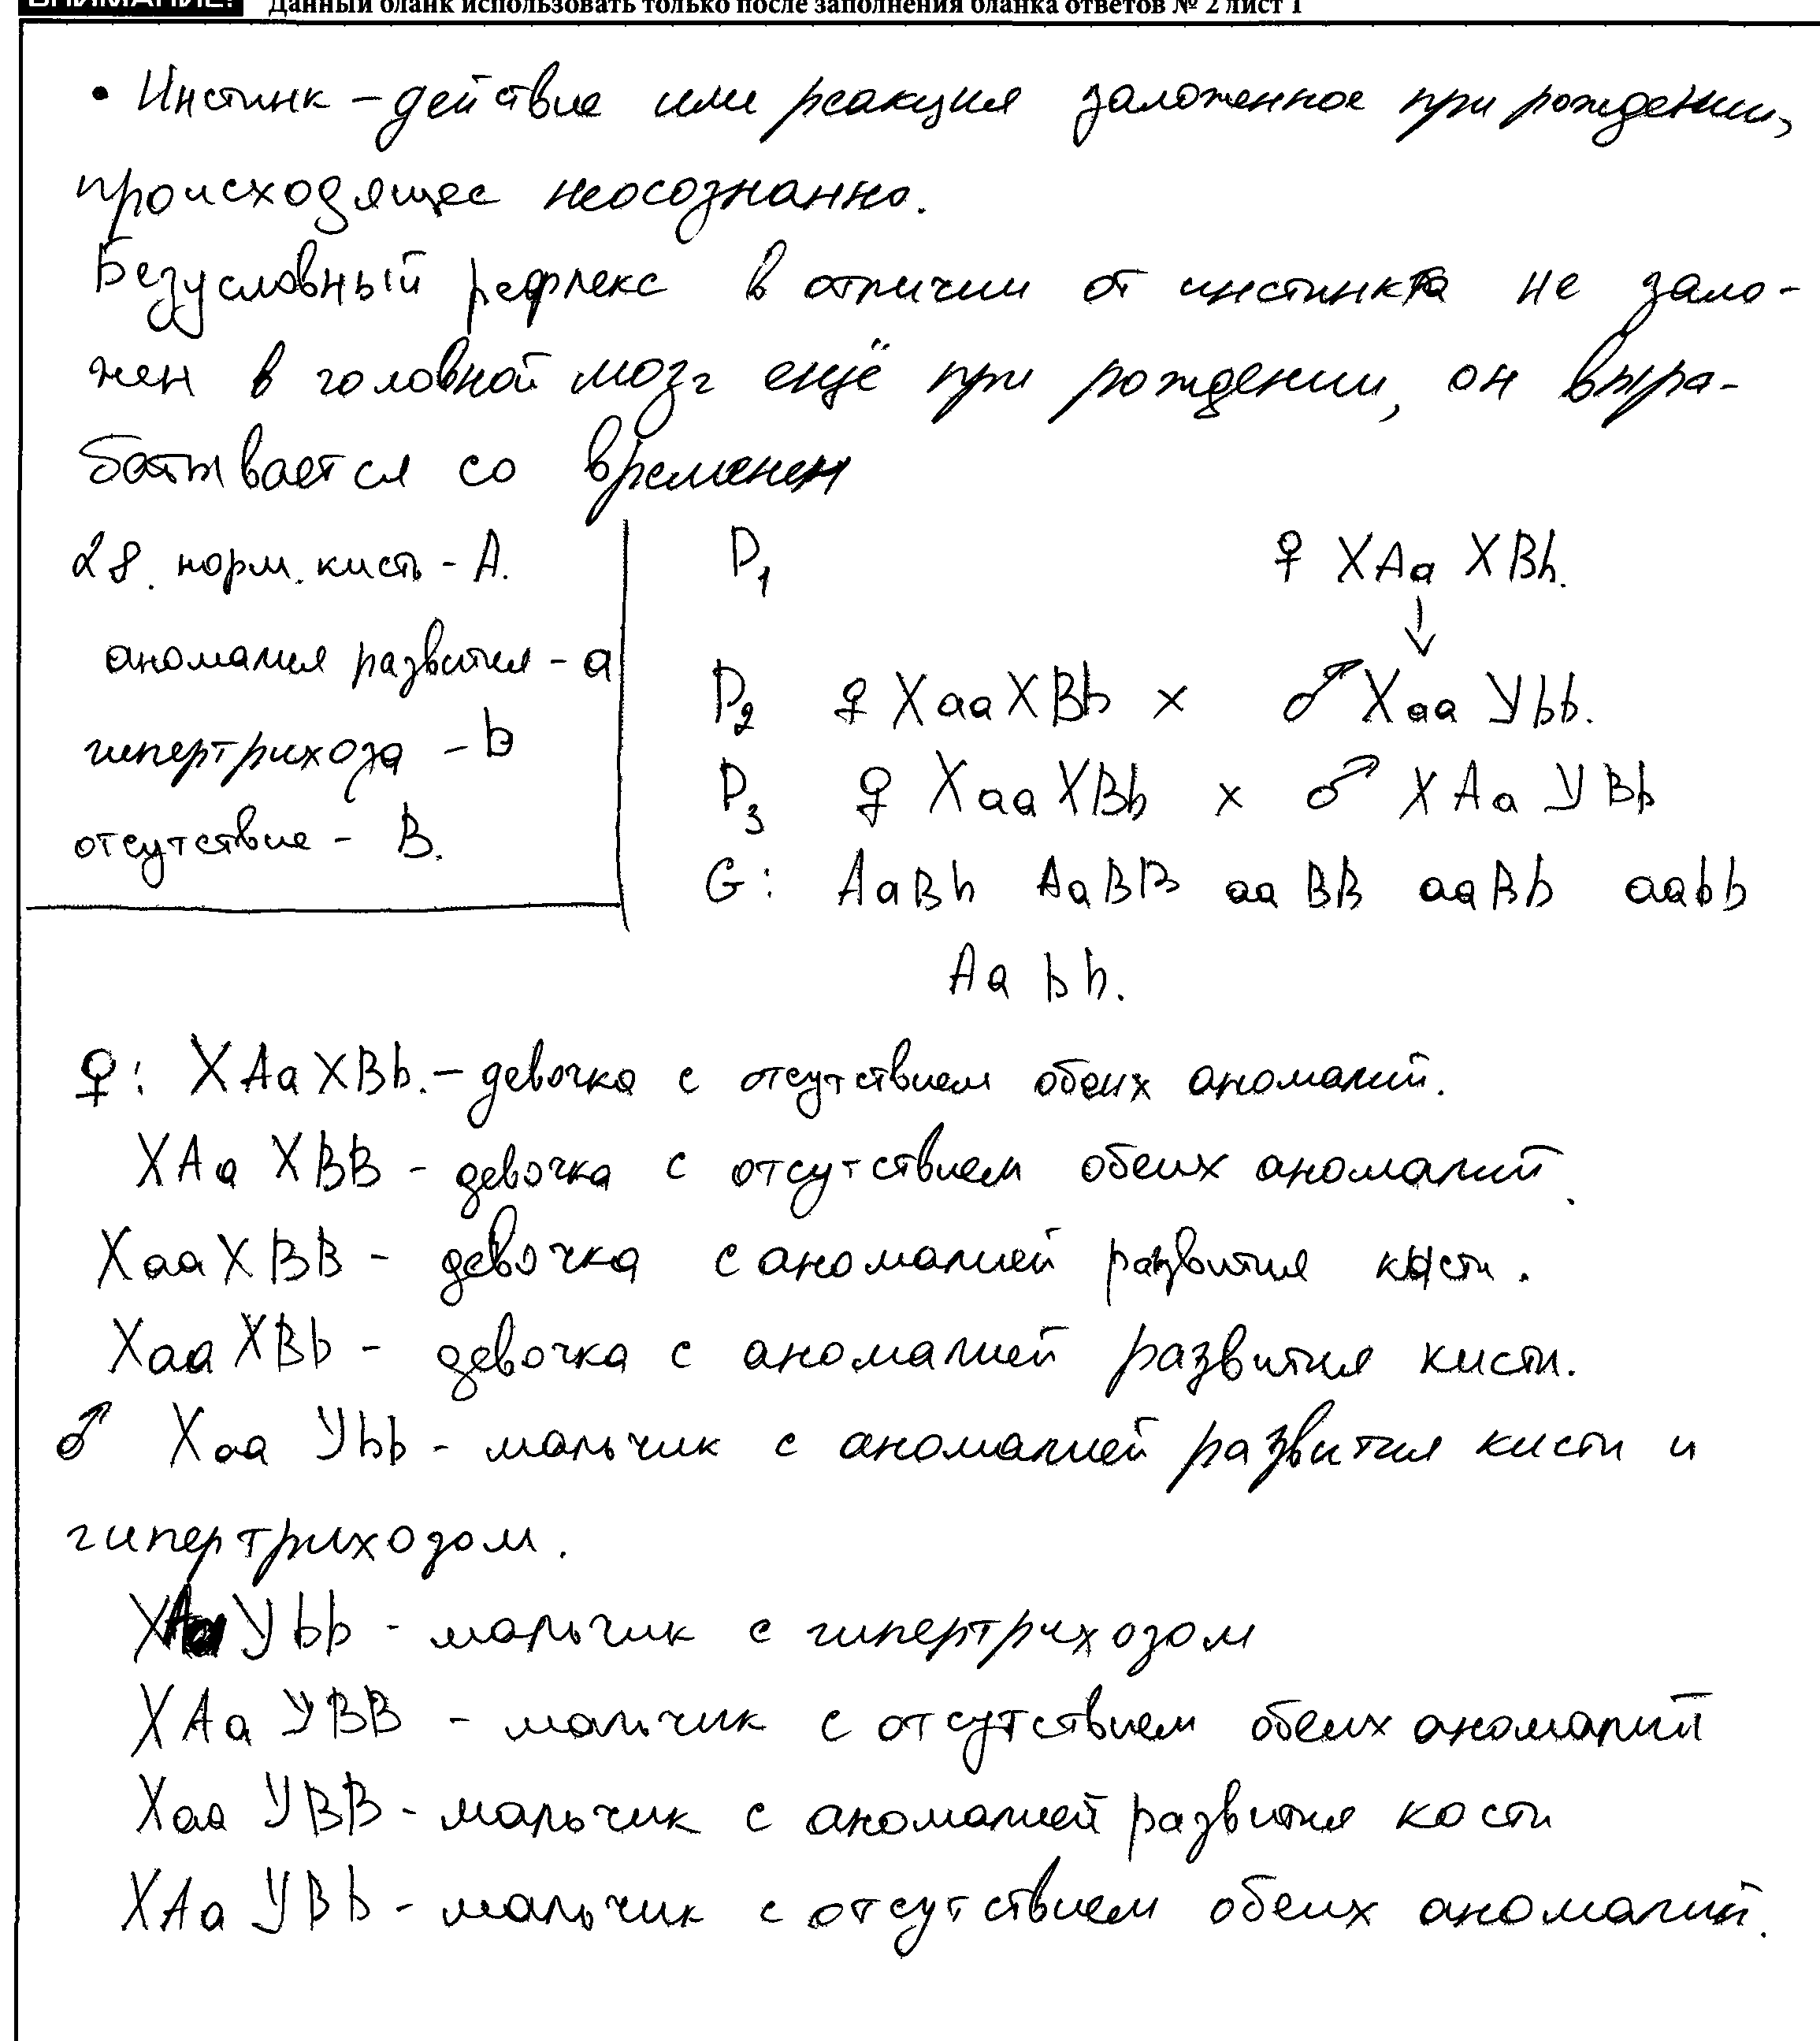 ВНИМАНИЕ! Данный бланк использовать только после заполнения бланка ответов № 2 лист 1
• Инстинк – действие или реакция заложенное при рождении,
происходящее неосознанно.
Безусловный рефлекс в отличии от инстинкта не зало-
жен в головной мозг ещё при рождении, он выра-
батывается со времен
28. норм. кисть - A.
аномалия развития - a
гипертрихоза - b
отсутствие - B.
P1 ♀ XAa XBb.
↓
P2 ♀ XaaXBb × ♂ Xaa Ybb.
P3 ♀ XaaXBb × ♂ XAa YBb
G: AaBb AaBB aaBB aaBb aabb
Aa bb.
♀: XAaXBb. – девочка с отсутствием обеих аномалий.
XAa XBB - девочка с отсутствием обеих аномалий.
XaaXBB - девочка с аномалией развития кисти.
Xaa XBb - девочка с аномалией развития кисти.
♂ Xaa Ybb - мальчик с аномалией развития кисти и
гипертрихозом.
XAa Ybb - мальчик с гипертрихозом
XAa YBB - мальчик с отсутствием обеих аномалий
Xaa YBB - мальчик с аномалией развития кости
XAa YBb - мальчик с отсутствием обеих аномалий.